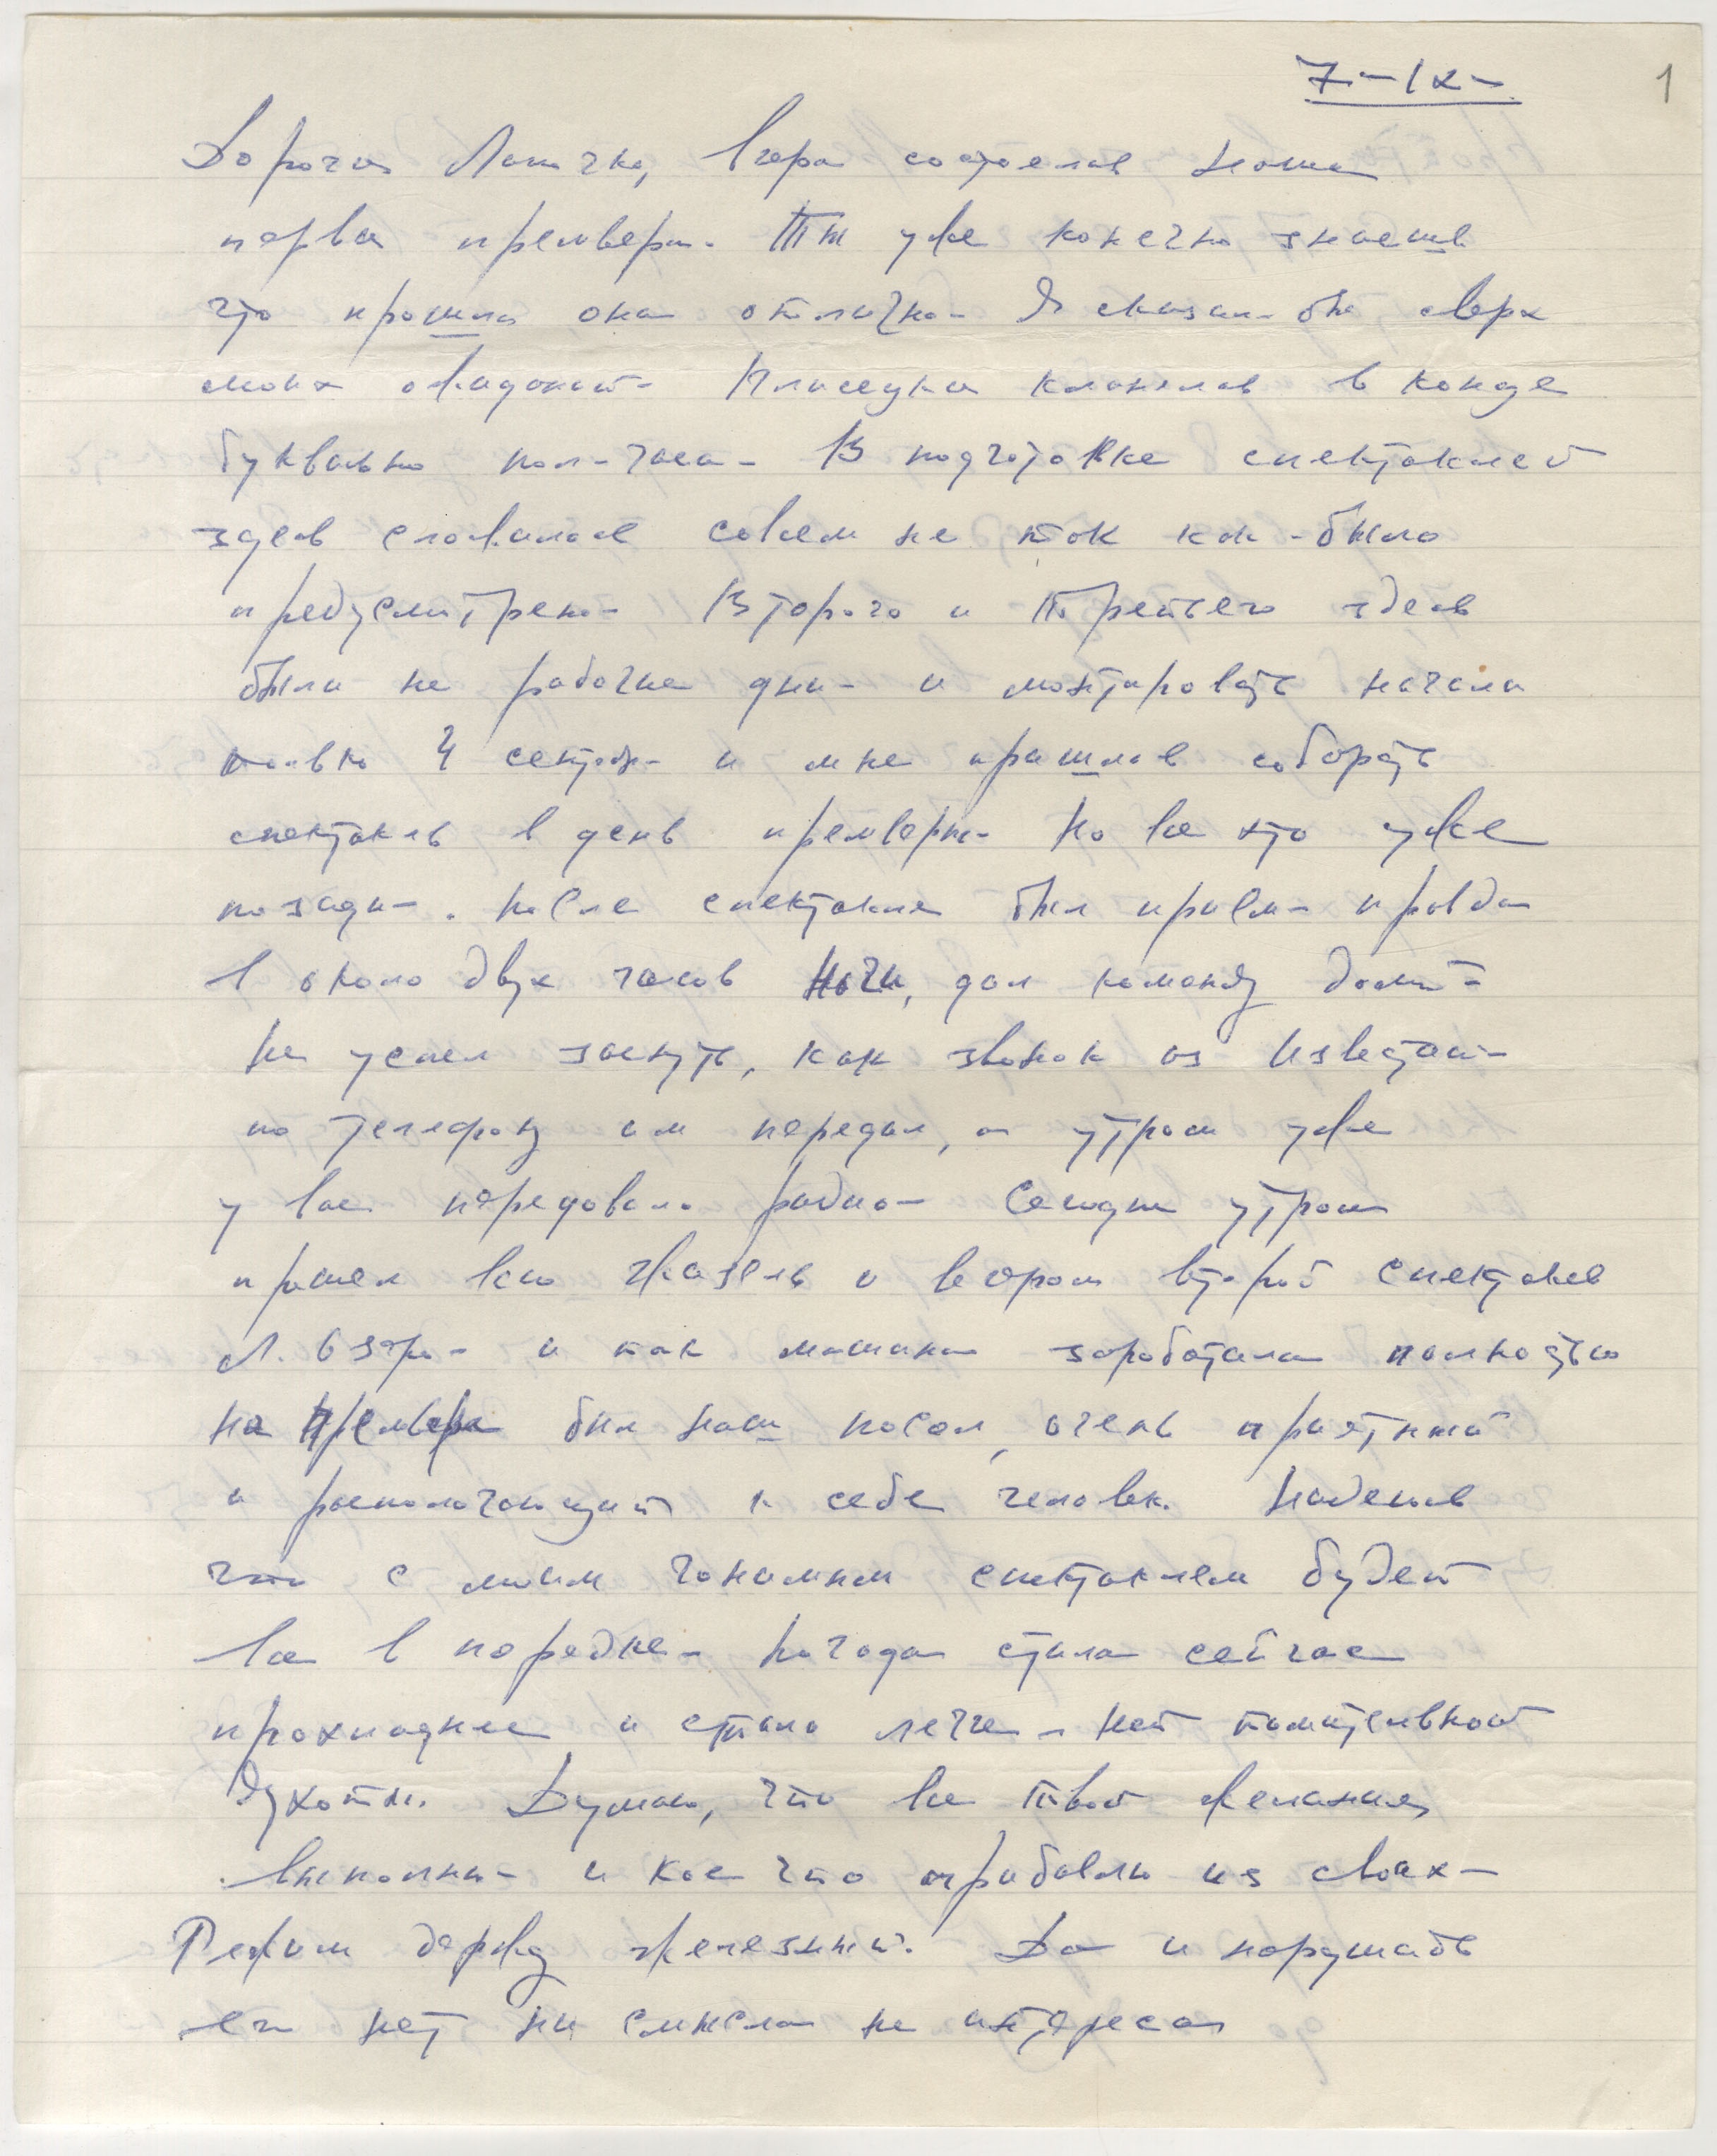 7-IX-
1
Дорогая Лапочка, вчера состоялась наша
первая премьера. Ты уже конечно знаешь
что прошла она отлично- Я сказал-бы, сверх
моих ожиданий- Плисецкая кланялась в конце
буквально пол-часа- В подготовке спектаклей
здесь сложилось совсем не так как-было
предусмотрено- Второго и Третьего здесь
были не рабочие дни- и монтировать начали
только 4 сентября- и мне пришлось собирать
спектакль в день премьеры- Но все это уже
позади-. После спектакля был прием- правда
в около двух часов ночи, дал команду домой-
Не успел заснуть, как звонок из Известий-
по телефону им передал, а утром уже
у вас передавало радио- Сегодня утром
прошел всю Жизель и вечером второй спектакль
Л. Озеро- и так машина заработала полностью
на Премьере был наш посол, очень приятный
и располагающий к себе человек. Надеюсь
что с моим спектаклем будет
все в порядке- Погода стала сейчас
прохладнее и стало легче- нет томительной
духоты. Думаю, что все твои желания
выполнил- и кое что прибавлю из своих-
Режим держу железный. Да и нарушать
его нет ни смысла не интереса